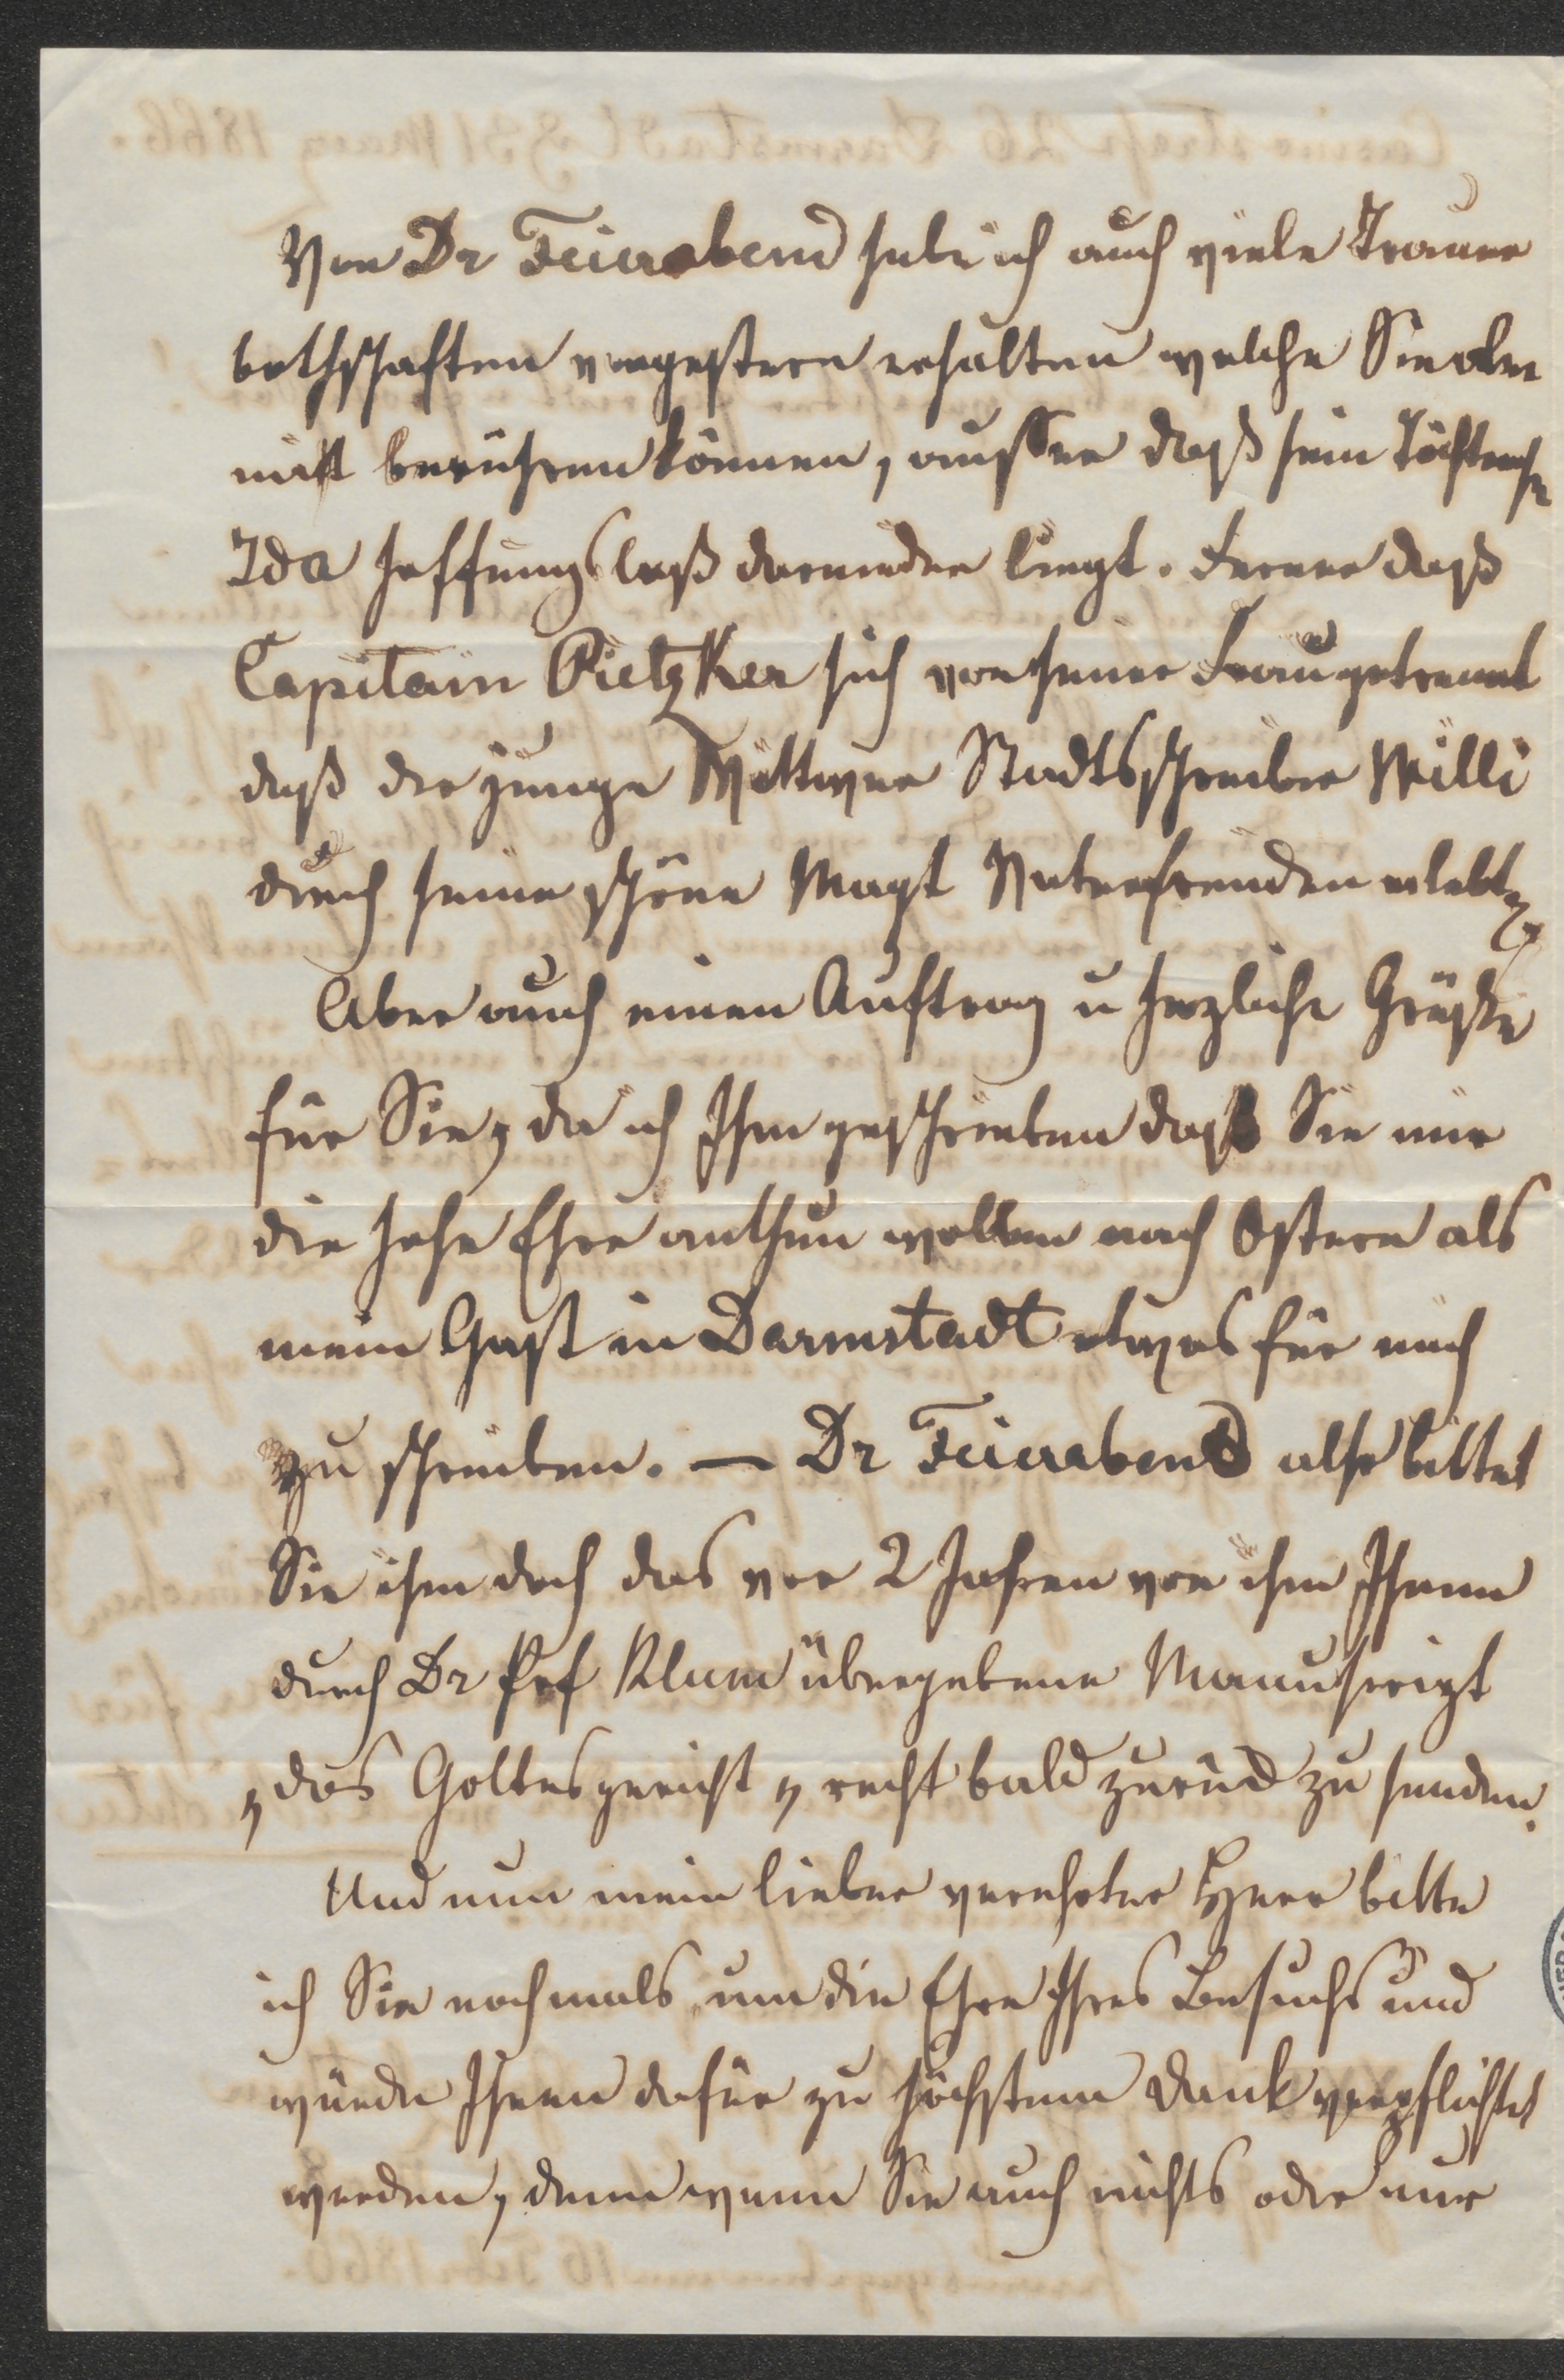 Von Dr Feierabend habe ich auch viele Trauer
bothschaften vorgestern erhalten welche Sie aber
nicht berühren können, ausser daß sein Töchterche
Ida hoffnungsloß darnieder liegt. Ferner daß
Capitain Pietzker sich von seiner Frau getrennt
daß der junge Wittwer Stadtschreiber Willi
durch seine schöne Magt Vaterfreuden erlebt
Aber auch einen Auftrag u herzliche Grüße
für Sie, da ich Ihm geschrieben daß Sie mir
die hohe Ehre anthun wollen nach Ostern als
mein Gast in Darmstadt etwas für mich
zu schreiben. — Dr Feierabend also bittet
Sie ihm doch das vor 2 Jahren von ihm Ihnen
durch Dr Prf Klum übergebene Manuscript
„das Gottesgericht„ recht bald zurück zu senden.
Und nun mein lieber verehrter Herr bitte
ich Sie nochmals um die Ehre Ihres Besuchs und
würde Ihnen dafür zu höchstem Dank verpflichtet
werden, denn wenn Sie auch nichts oder nur